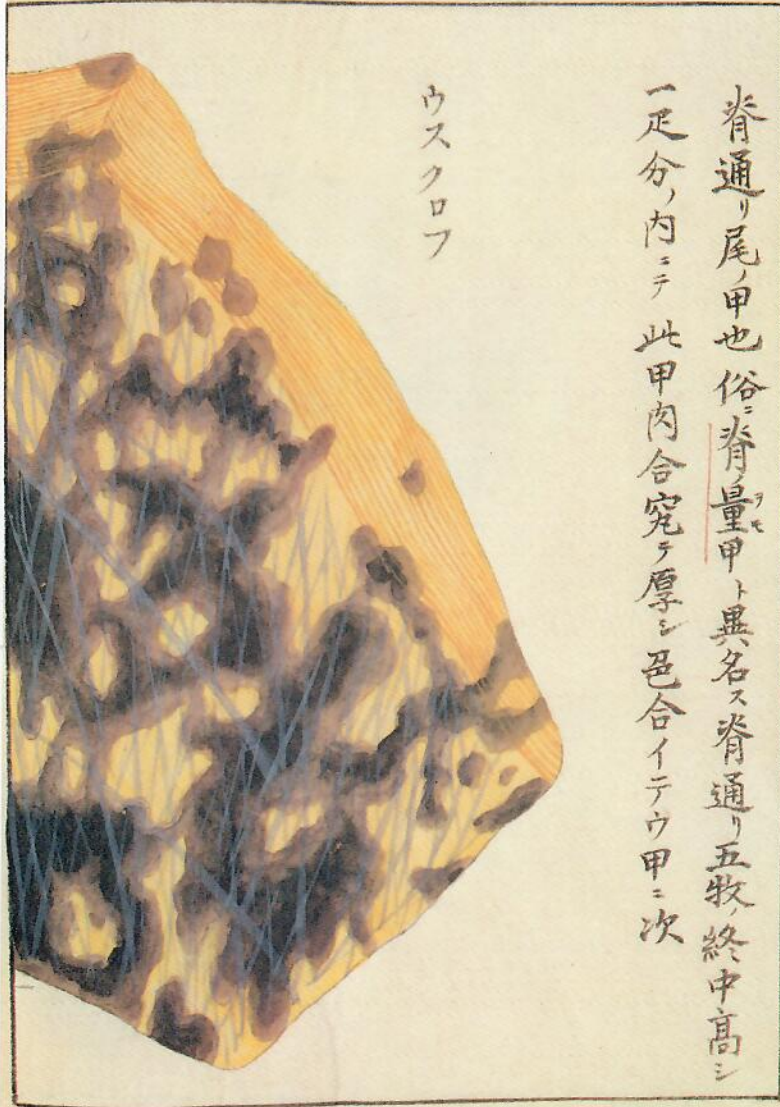 脊通リ尾ノ甲也俗ニ脊ノ量甲ト異名ス脊通リ五牧ノ終中高シ
ヲモ
一疋分ノ内ニテ此甲肉合究テ厚シ色合イテウ甲ニ次
ウスクロフ